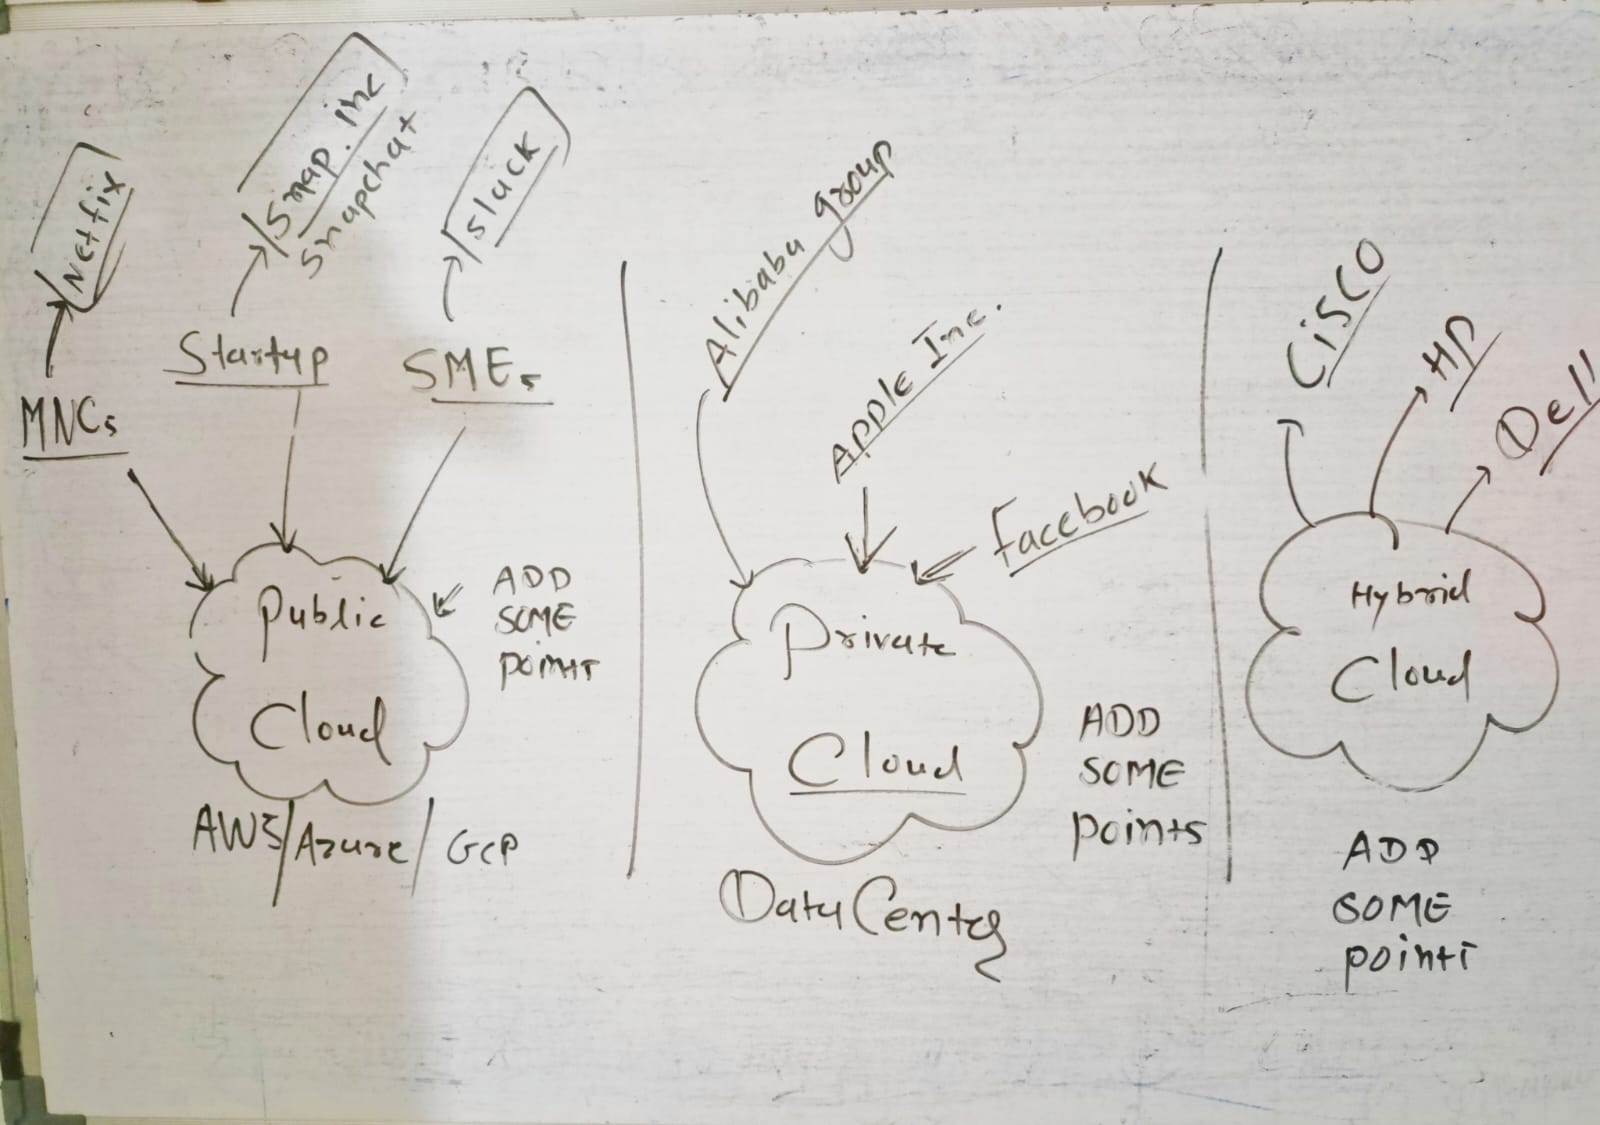 Netfix
MNCs
Snap. inc
Snapchat
Startup
Slack
SMEs
Public
Cloud
ADD
SOME
points
AWS/Azure/GCP
Alibaba group
Apple Inc.
Facebook
Private
Cloud
ADD
SOME
points
Data Center
Cisco
HP
Dell
Hybrid
Cloud
ADD
SOME
points